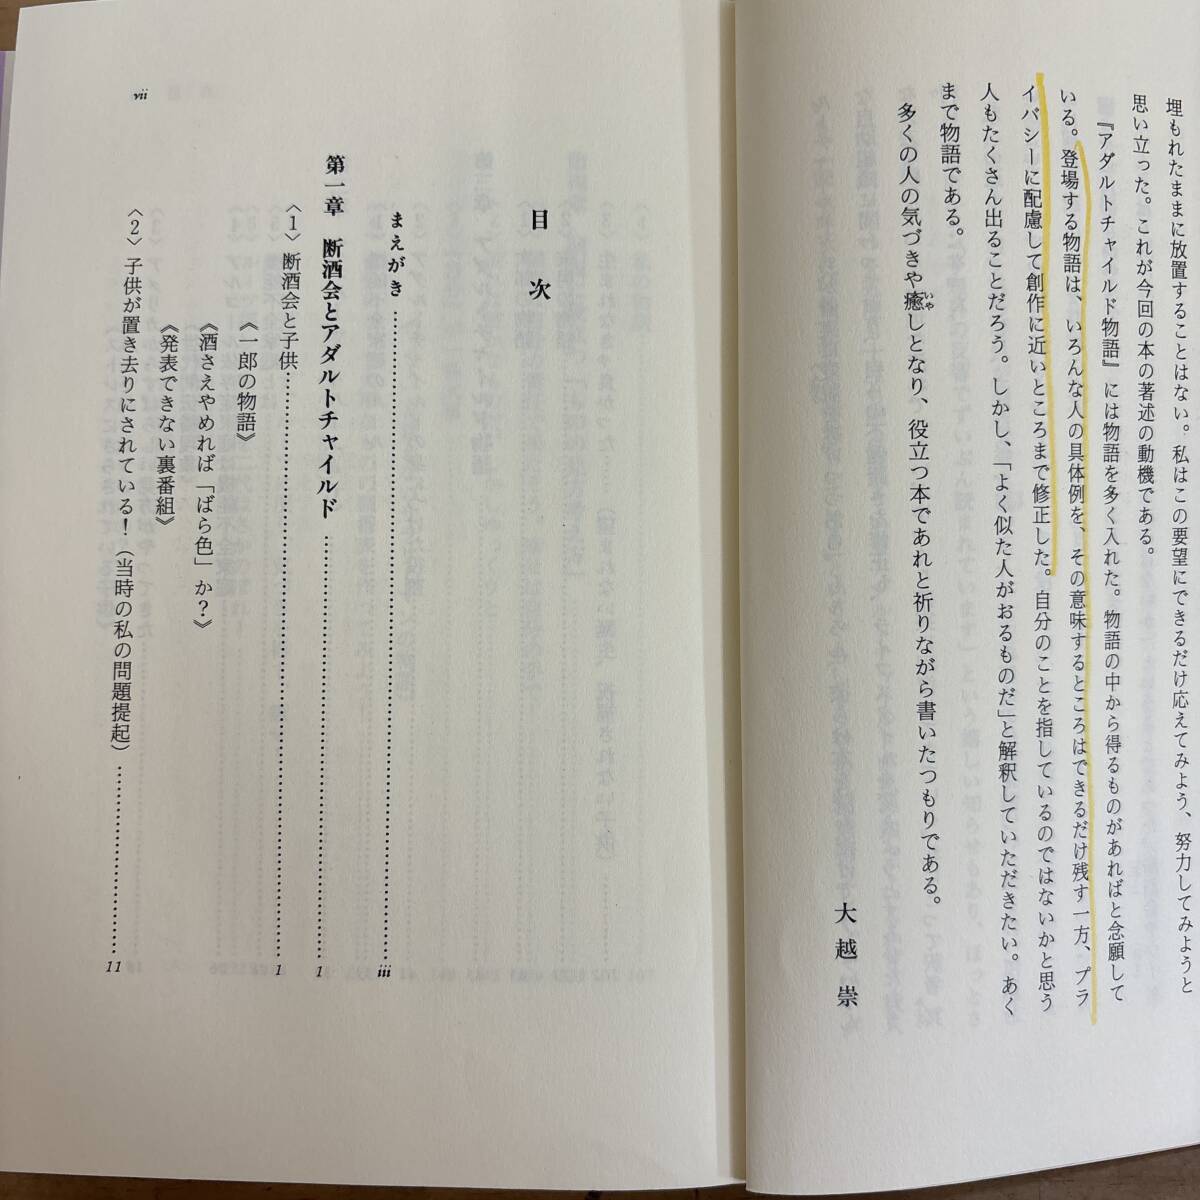 埋もれたままに放置することはない。私はこの要望にできるだけ応えてみよう、努力してみようと
思い立った。これが今回の本の著述の動機である。
『アダルトチャイルド物語』には物語を多く入れた。物語の中から得るものがあればと念願して
いる。登場する物語は、いろんな人の具体例を、その意味するところはできるだけ残す一方、プラ
イバシーに配慮して創作に近いところまで修正した。自分のことを指しているのではないかと思う
人もたくさん出ることだろう。しかし、「よく似た人がおるものだ」と解釈していただきたい。あく
まで物語である。
多くの人の気づきや癒しとなり、役立つ本であれと祈りながら書いたつもりである。
いや
大越崇
目次
まえがき……………………………………iii
第一章 断酒会とアダルトチャイルド……………………………………1
〈1〉断酒会と子供……………………………………1
《一郎の物語》
《酒さえやめれば「ばら色」か?》
《発表できない裏番組》
〈2〉子供が置き去りにされている!(当時の私の問題提起)……………………………………11
vii